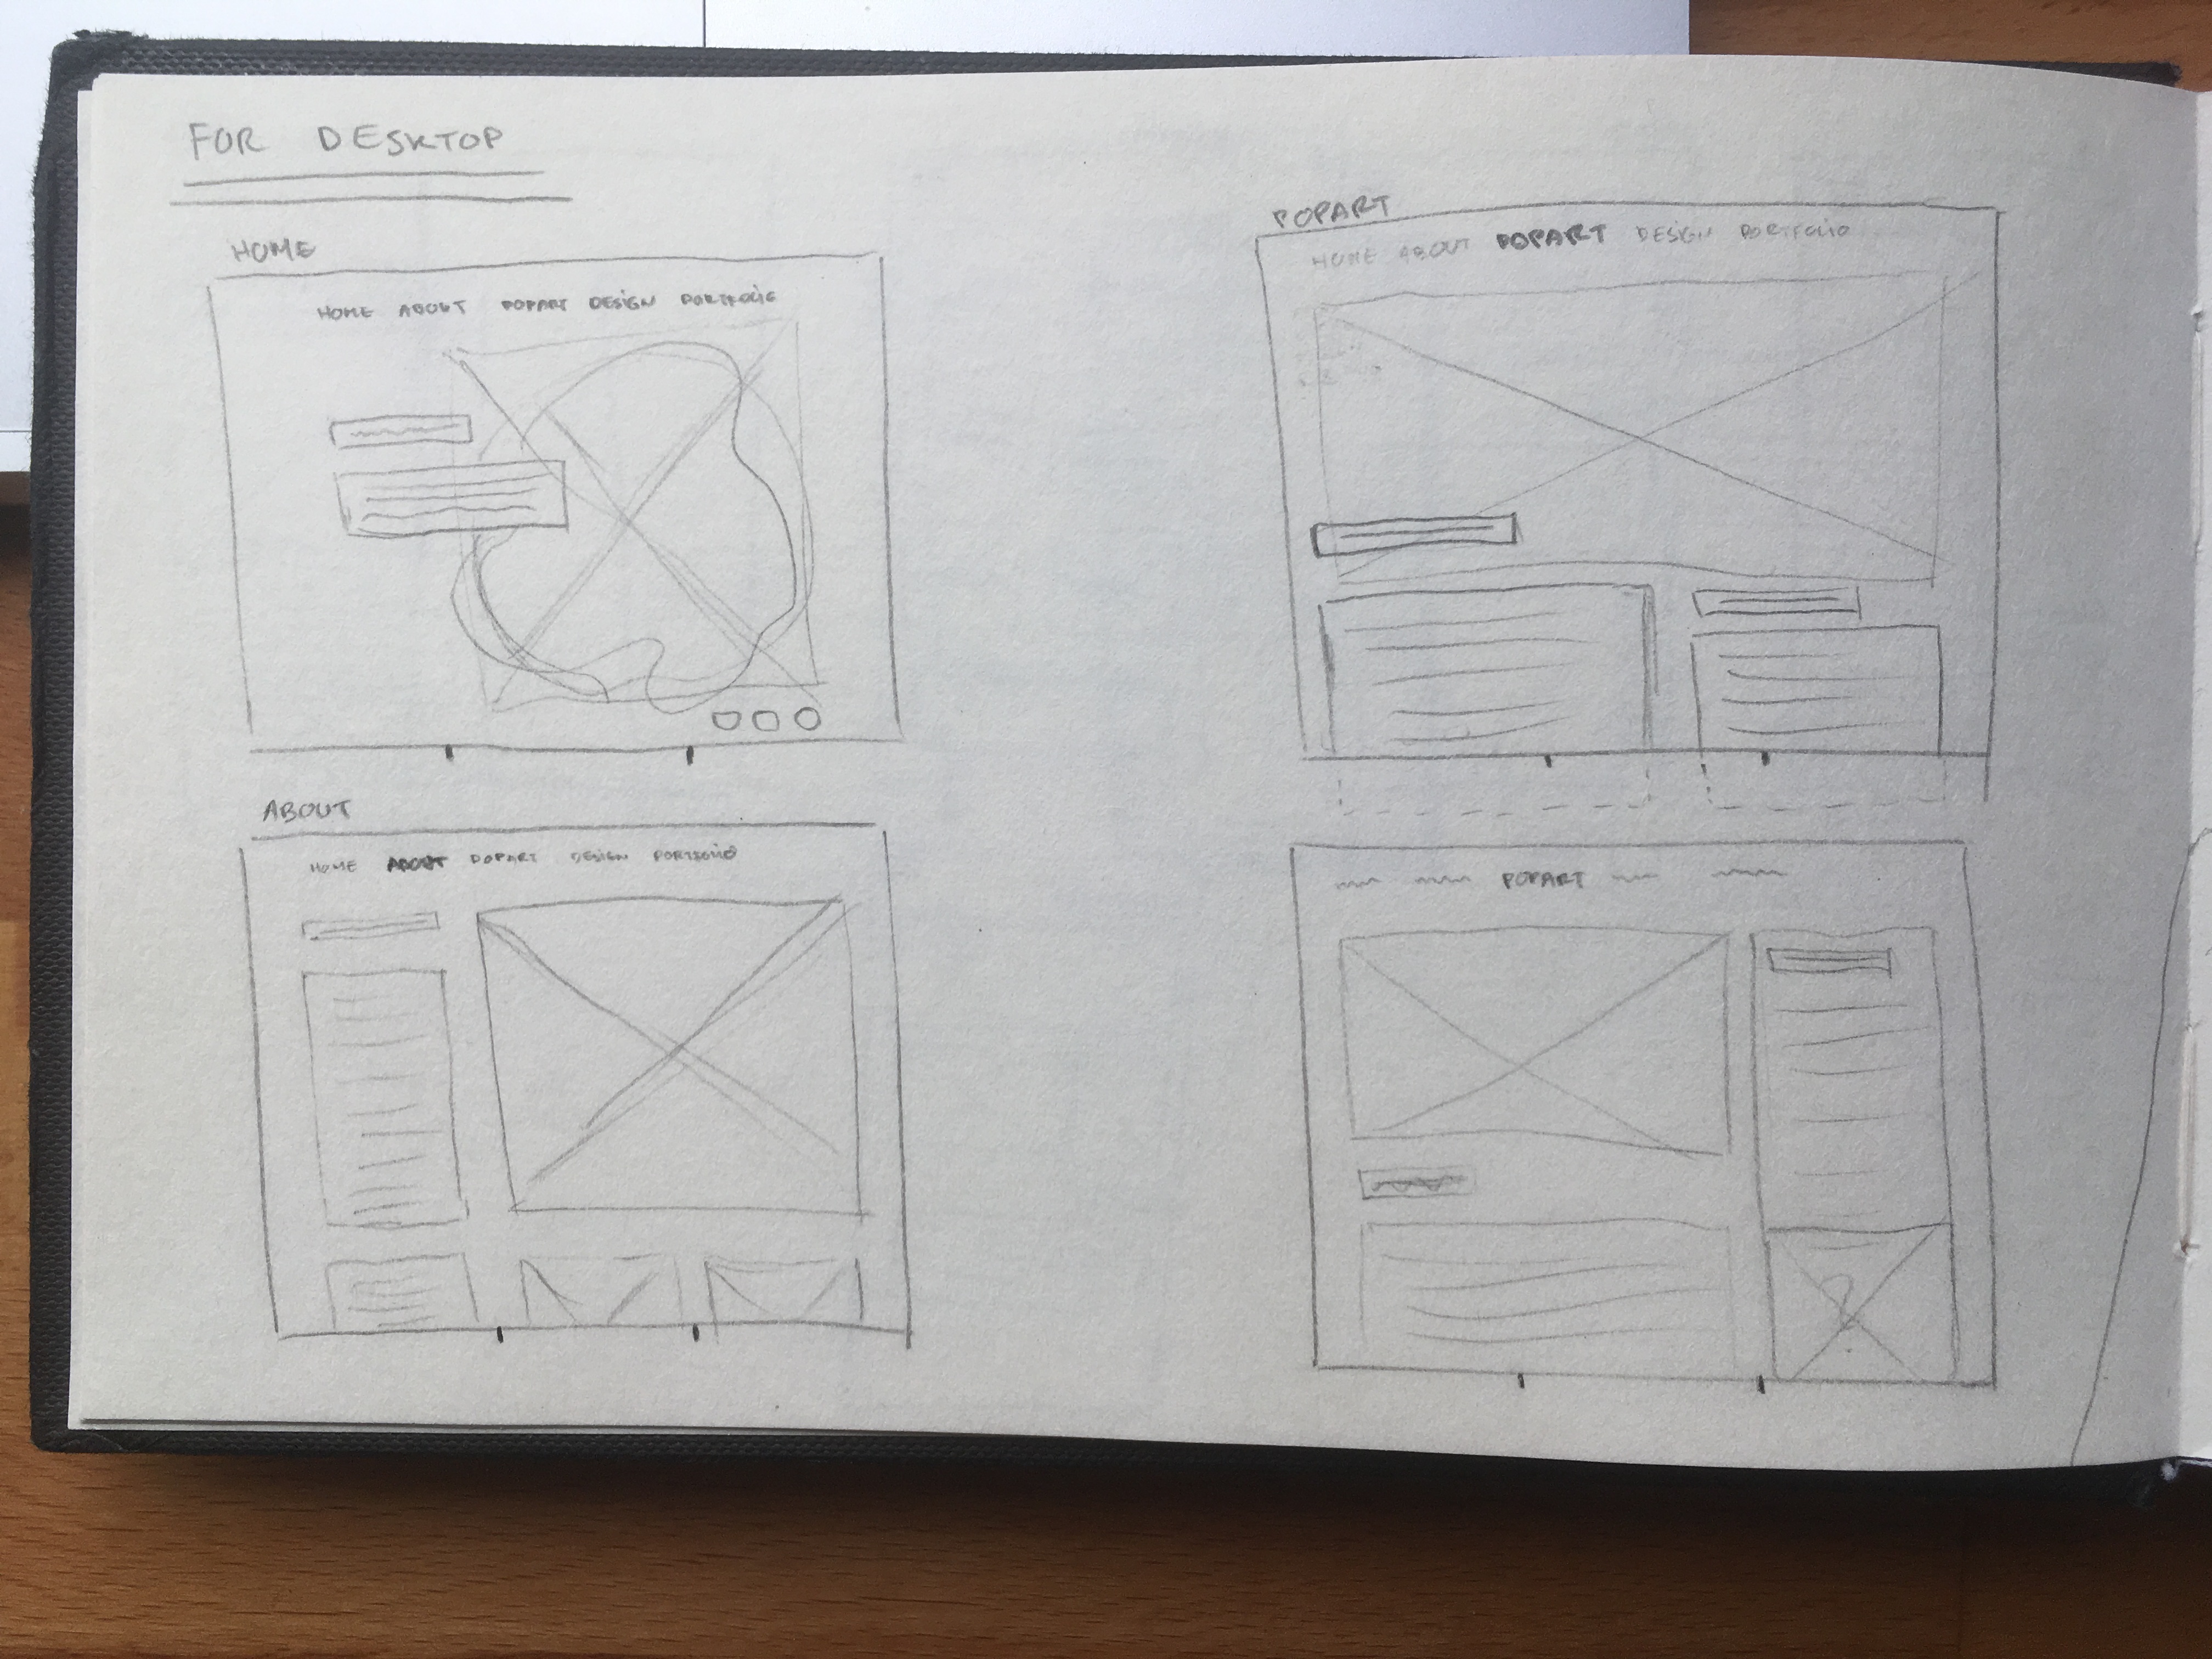 FOR DESKTOP
HOME
HOME ABOUT POPART DESIGN PORTFOLIO
ABOUT
HOME ABOUT POPART DESIGN PORTFOLIO
POPART
HOME ABOUT POPART DESIGN PORTFOLIO
POPART